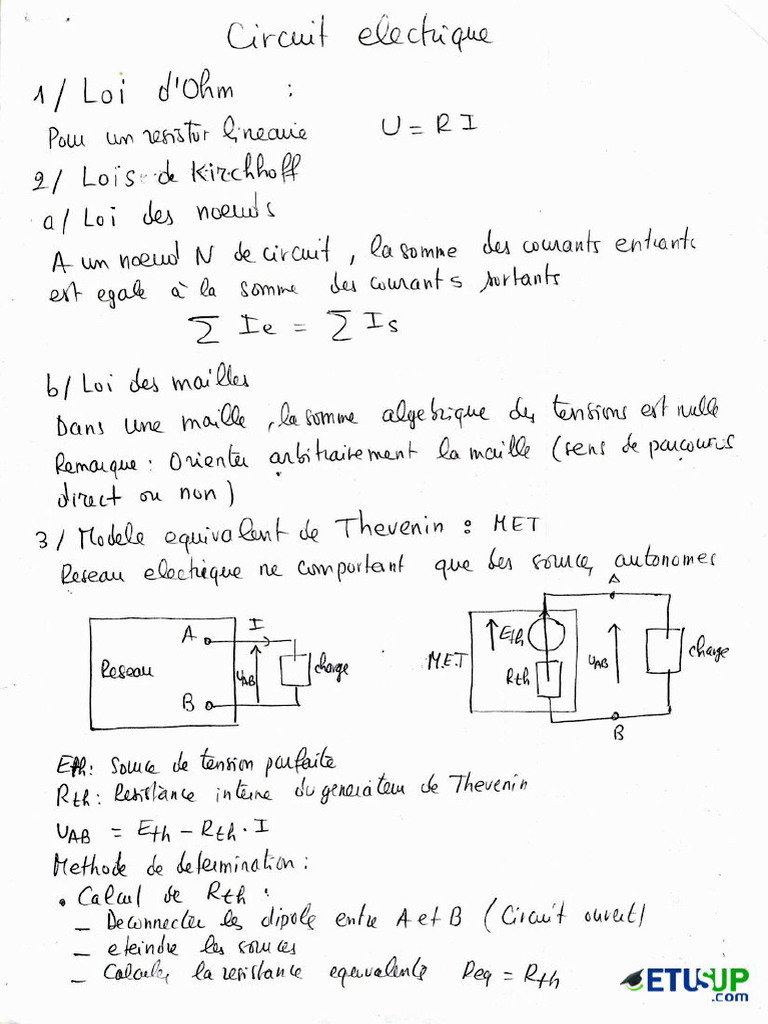 Circuit electrique
1/ Loi d'Ohm :
Pour un resistor lineaire U = R I
2/ Lois de Kirchhoff
a/ Loi des noeuds
A un noeud N de circuit, la somme des courants entrants
est egale à la somme des courants sortants
∑ Ie = ∑ Is
b/ Loi des mailles
Dans une maille, la somme algebrique des tensions est nulle
Remarque : Orienter arbitrairement la maille (sens de parcours
direct ou non)
3/ Modele equivalent de Thevenin : MET
Reseau electrique ne comportant que des sources autonomes
A I
Reseau UAB charge
B
A
M.E.T Eth UAB charge
Rth
B
Eth : Source de tension parfaite
Rth : Resistance interne du generateur de Thevenin
UAB = Eth - Rth . I
Methode de determination :
• Calcul de Rth :
- Deconnecter les dipole entre A et B (Circuit ouvert)
- eteindre les sources
- Calculer la resistance equivalente Req = Rth
ETUSUP
.com